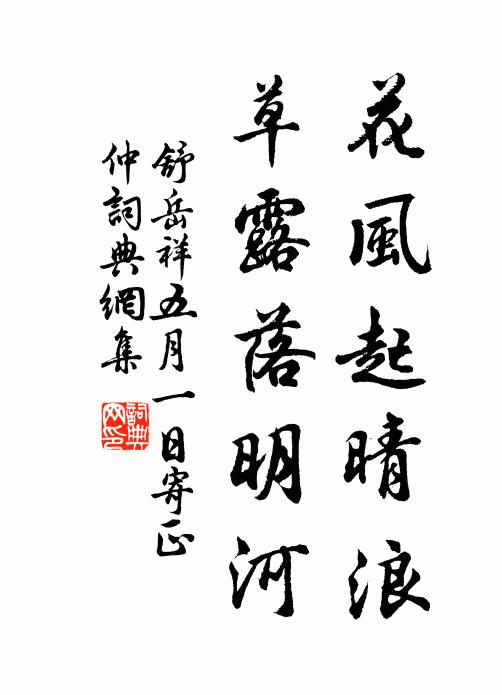 花風起晴浪
草露落明河
舒岳祥五月一日寄正
仲詞典網集
詞典
网印